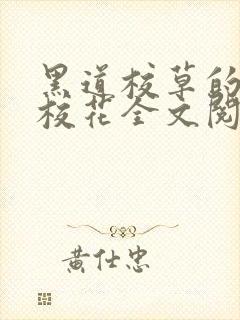 黑道校草的
校花全文阅
黄仕忠